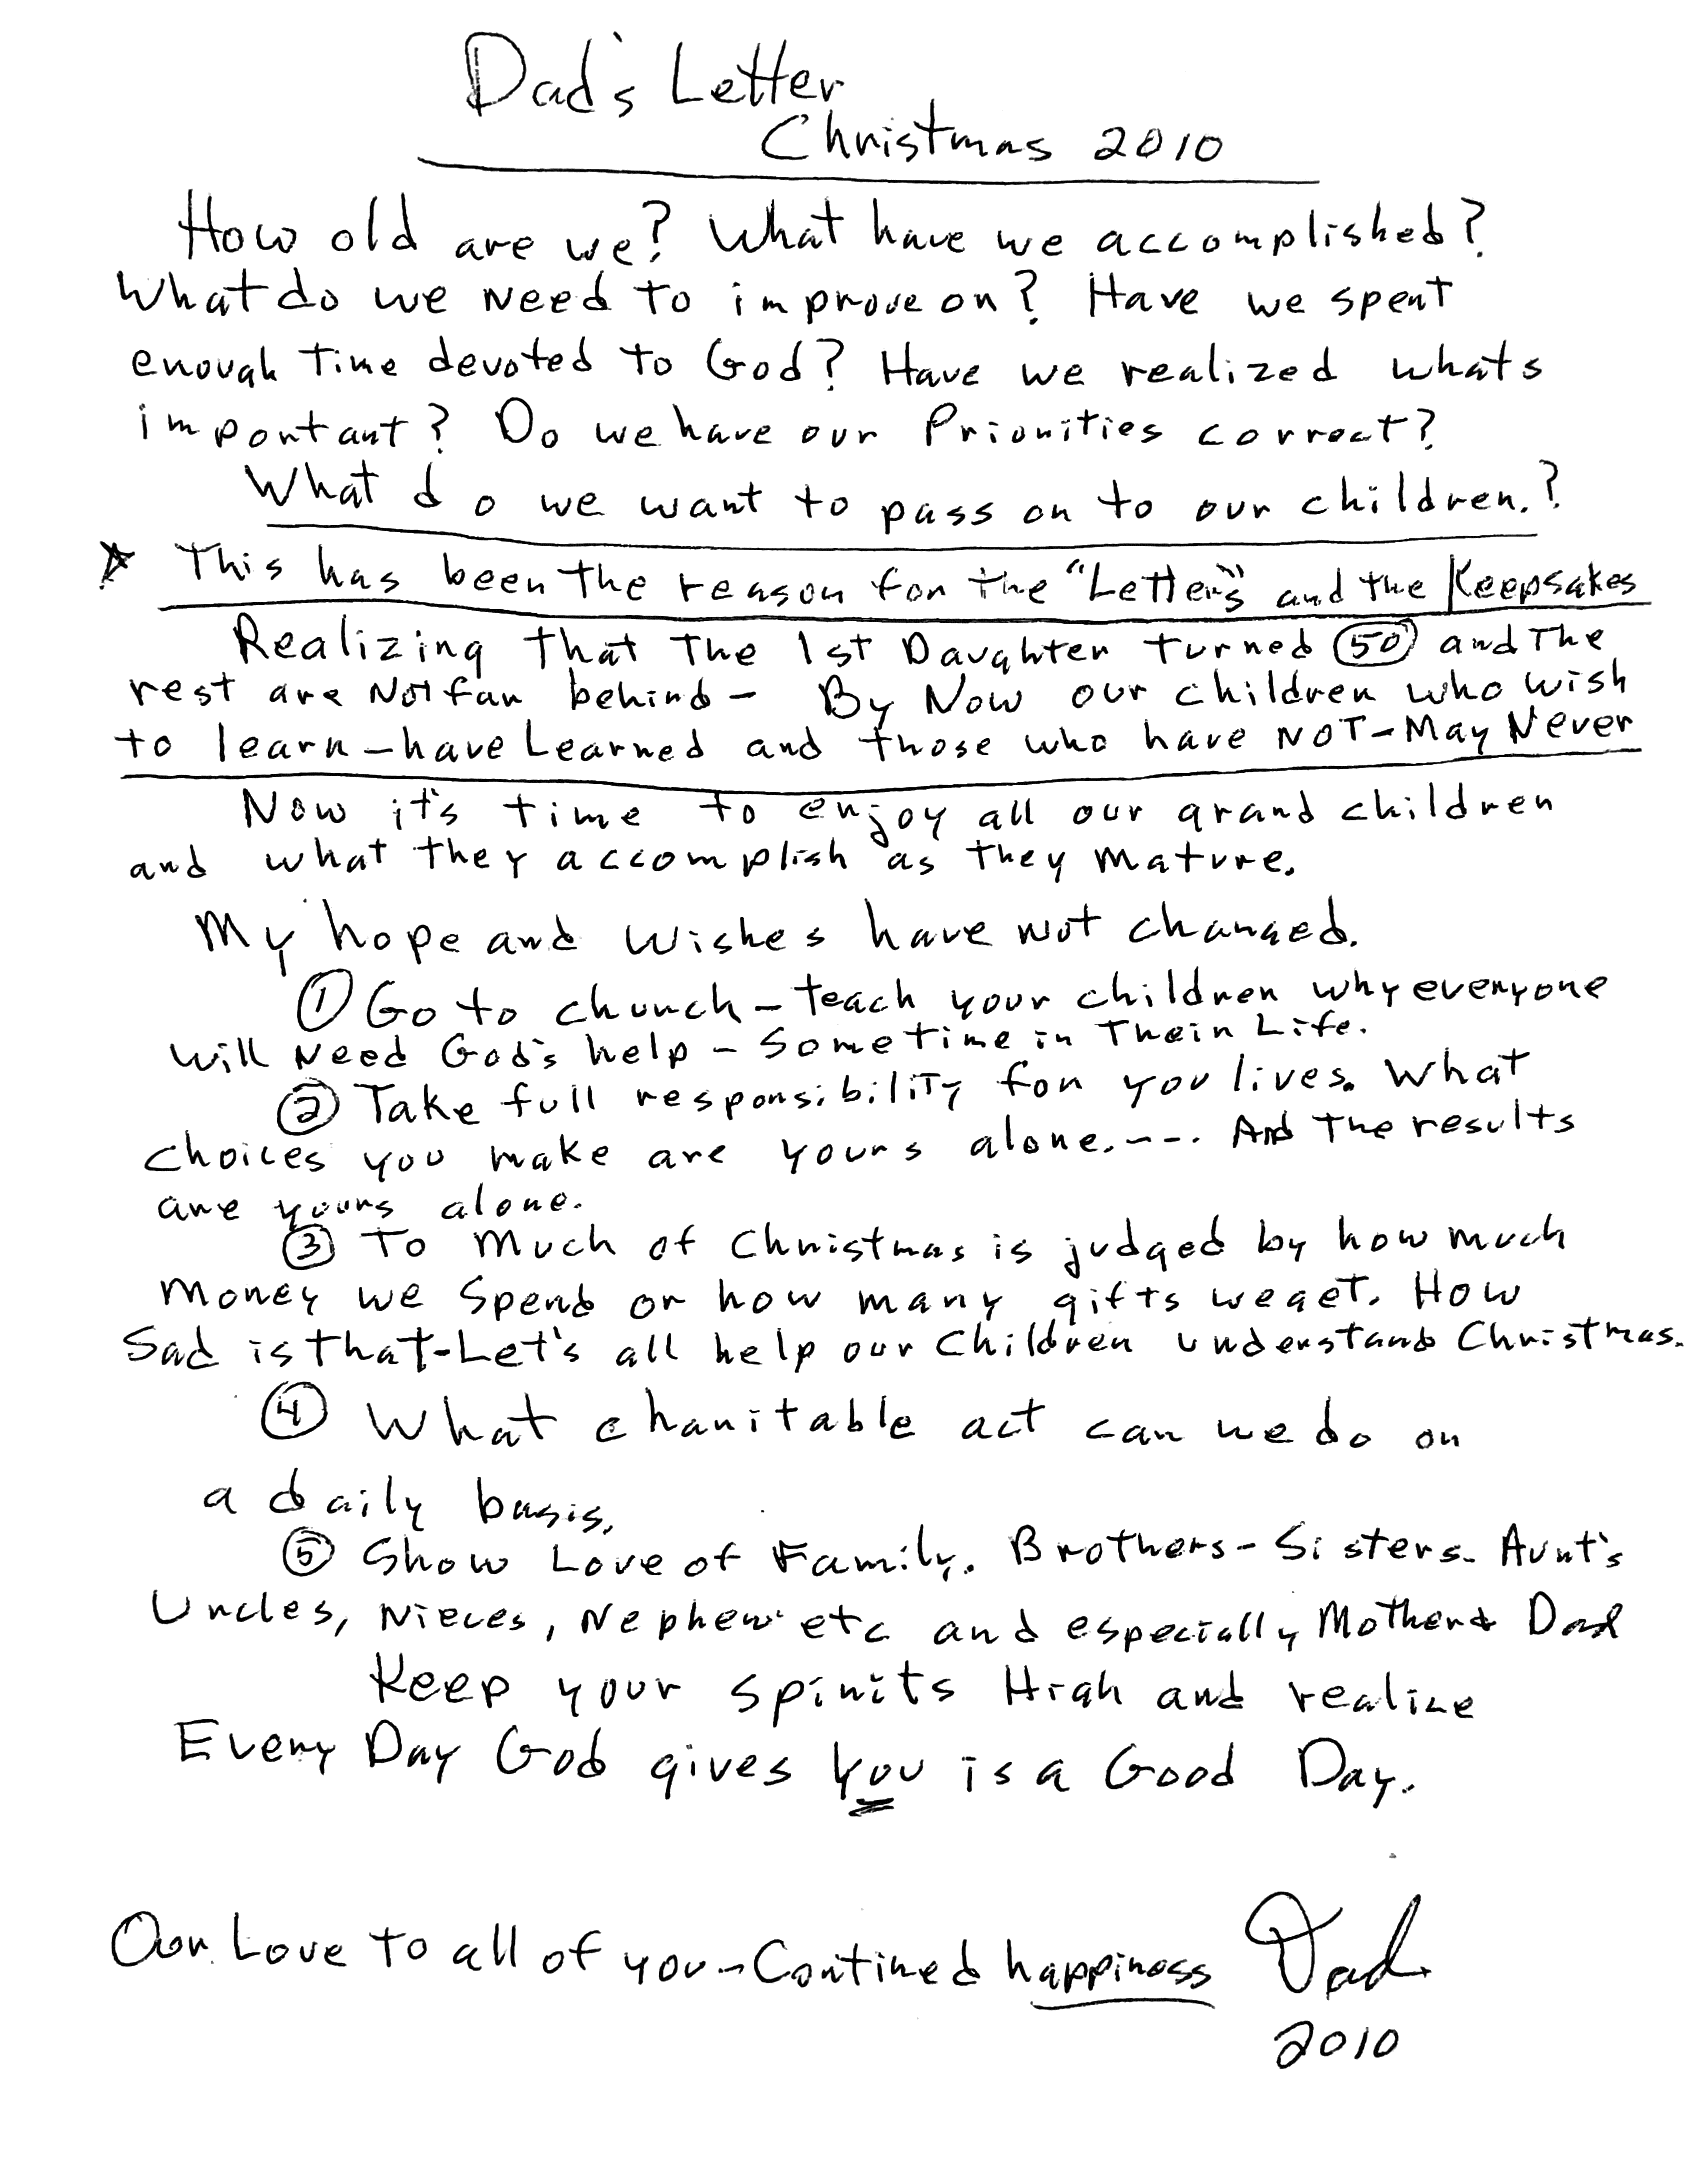 Dad's Letter
Christmas 2010
How old are we? What have we accomplished?
What do we Need to improve on? Have we spent
enough Time devoted to God? Have we realized whats
important? Do we have our Priorities correct?
What do we want to pass on to our children.?
☆ This has been the reason for the "Letter's" and the Keepsakes
Realizing that The 1st Daughter turned 50 and The
rest are Not far behind - By Now our children who wish
to learn - have Learned and those who have NOT - May Never
Now it's time to enjoy all our grand children
and what they accomplish as they mature.
My hope and wishes have not changed.
① Go to church - teach your children why everyone
will Need God's help - Sometime in Their Life.
② Take full responsibility for you lives. What
choices you make are yours alone. --. And The results
are yours alone.
③ To Much of Christmas is judged by how much
money we spend or how many gifts we get. How
Sad is that - Let's all help our Children understand Christmas.
④ What charitable act can we do on
a daily basis.
⑤ Show Love of Family. Brothers - Sisters - Aunt's
Uncles, Nieces, Nephew etc and especially Mother & Dad
Keep your spirits High and realize
Every Day God gives you is a Good Day.
Our Love To all of you - Contined happiness Dad
2010